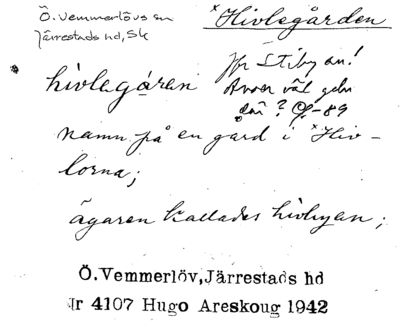 Ö. Vemmerlövs sn
Järrestads hd, Sk
×Hivlegården
Jfr Stiby sn!
hivlegáren
namn på en gård i ×Hiv-
lorna;
ägaren kallades hivlyan;
Ö.Vemmerlöv, Järrestads hd
Nr 4107 Hugo Areskoug 1942